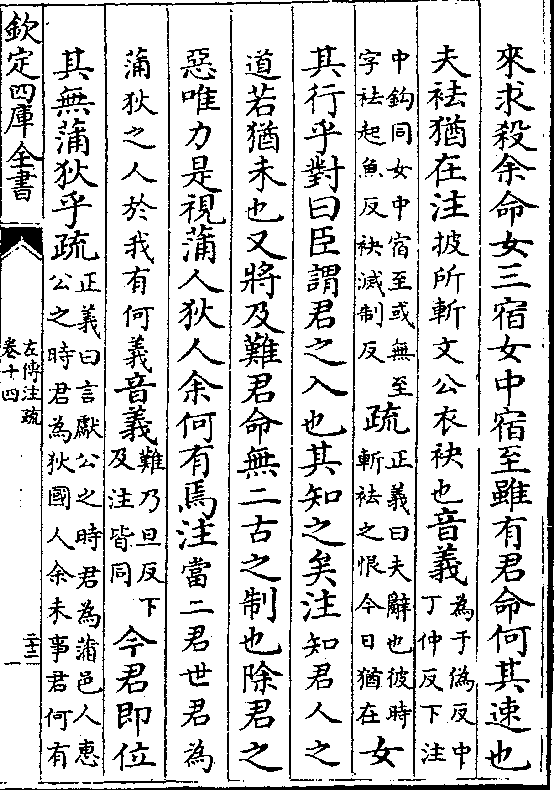 來求殺余命女三宿女中宿至雖有君命何其速也
夫袪猶在注披所斬文公衣袂也音義為于偽反中
丁仲反下注
中鈎同女中宿至或無至
字袪起魚反袂滅制反疏正義曰夫辭也彼時
斬袪之恨今日猶在女
其行乎對曰臣謂君之入也其知之矣注知君人之
道若猶未也又將及難君命無二古之制也除君之
惡唯力是視蒲人狄人余何有焉注當二君世君為
蒲狄之人於我有何義音義難乃旦反下
及注皆同今君即位
其無蒲狄乎疏正義曰言獻公之時君為蒲邑人惠
公之時君為狄國人余未事君何有
欽定四庫全書
左傳注疏
卷十四
二十二
一